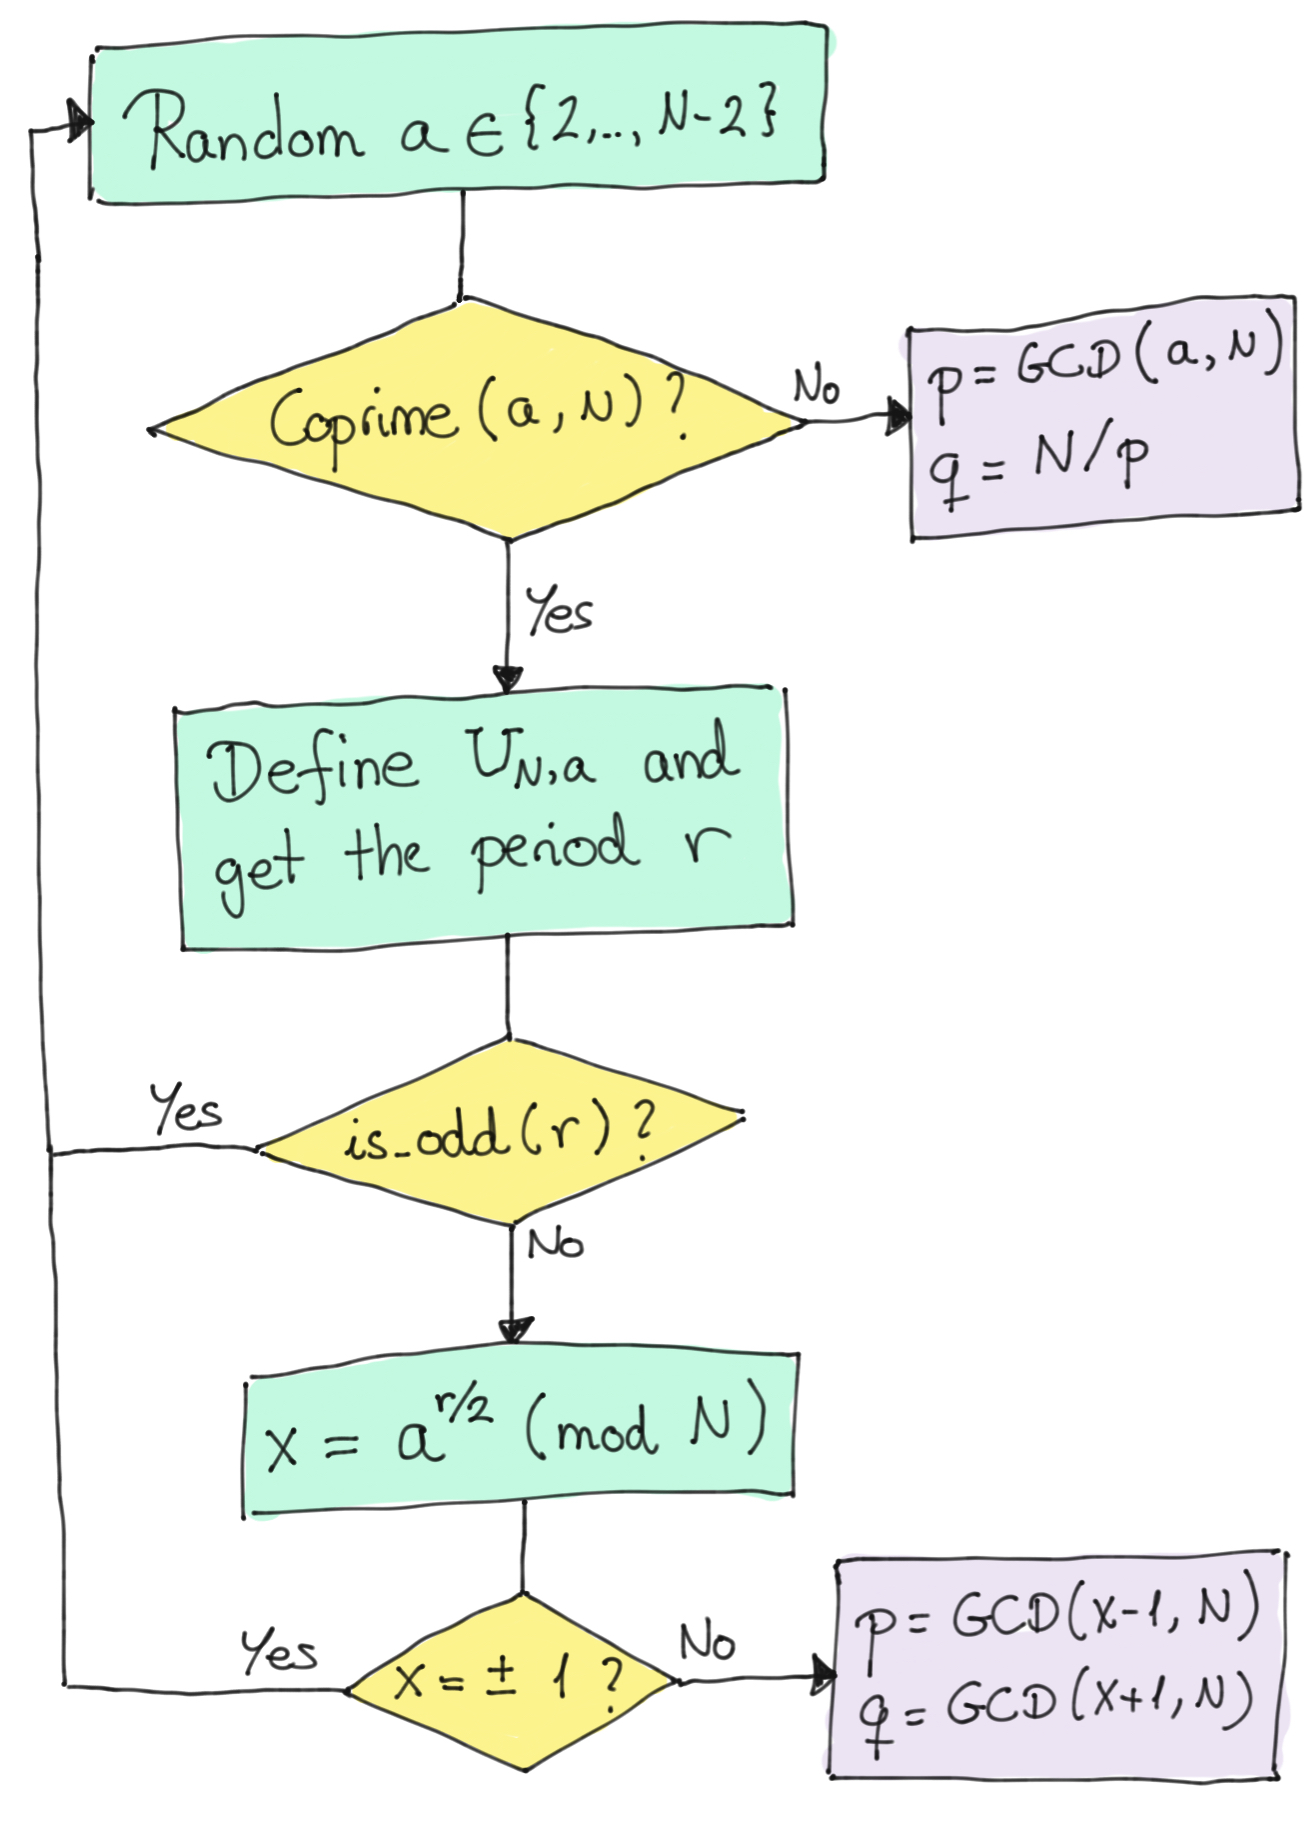 Random a ∈ {2,.., N-2}
Coprime (a, N) ?
No
p = GCD (a, N)
q = N/p
Yes
Define U_{N,a} and
get the period r
Yes
is_odd (r) ?
No
x = a^{r/2} (mod N)
Yes
x = ± 1 ?
No
p = GCD(x-1, N)
q = GCD(x+1, N)